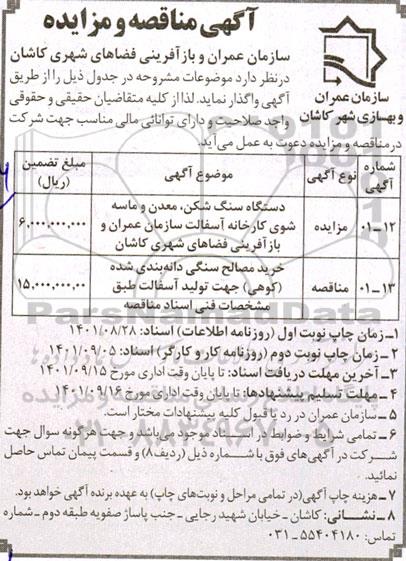 آگهی مناقصه و مزایده
سازمان عمران و بازآفرینی فضاهای شهری کاشان
درنظر دارد موضوعات مشروحه در جدول ذیل را از طریق
آگهی واگذار نماید. لذا از کلیه متقاضیان حقیقی و حقوقی
واجد صلاحیت و دارای توانائی مالی مناسب جهت شرکت
درمناقصه و مزایده دعوت به عمل می‌آید.
سازمان عمران
و بهسازی شهر کاشان
شماره آگهی | نوع آگهی | موضوع آگهی | مبلغ تضمین (ریال)
۰۱-۱۲ | مزایده | دستگاه سنگ شکن، معدن و ماسه
شوی کارخانه آسفالت سازمان عمران و
بازآفرینی فضاهای شهری کاشان | ۶,۰۰۰,۰۰۰,۰۰۰
۰۱-۱۳ | مناقصه | خرید مصالح سنگی دانه‌بندی شده
(کوهی) جهت تولید آسفالت طبق
مشخصات فنی اسناد مناقصه | ۱۵,۰۰۰,۰۰۰,۰۰۰
۱ـ زمان چاپ نوبت اول (روزنامه اطلاعات) اسناد: ۱۴۰۱/۰۸/۲۸
۲ـ زمان چاپ نوبت دوم (روزنامه کار و کارگر) اسناد: ۱۴۰۱/۰۹/۰۵
۳ـ آخرین مهلت دریافت اسناد: تا پایان وقت اداری مورخ ۱۴۰۱/۰۹/۱۵
۴ـ مهلت تسلیم پیشنهادها: تا پایان وقت اداری مورخ ۱۴۰۱/۰۹/۱۶
۵ـ سازمان عمران در رد یا قبول کلیه پیشنهادات مختار است.
۶ـ تمامی شرایط و ضوابط در اسناد موجود می‌باشد و جهت هرگونه سوال جهت
شرکت در آگهی‌های فوق با شماره ذیل (ردیف۸) و قسمت پیمان تماس حاصل
نمائید.
۷ـ هزینه چاپ آگهی(در تمامی مراحل و نوبت‌های چاپ) به عهده برنده آگهی خواهد بود.
۸ـ نشانی: کاشان ـ خیابان شهید رجایی ـ جنب پاساژ صفویه طبقه دوم ـ شماره
تماس: ۵۵۴۰۴۱۸۰ ـ ۰۳۱
ParsNamadData
۰۲۱-۸۸۳۴۹۶۷۰-۵